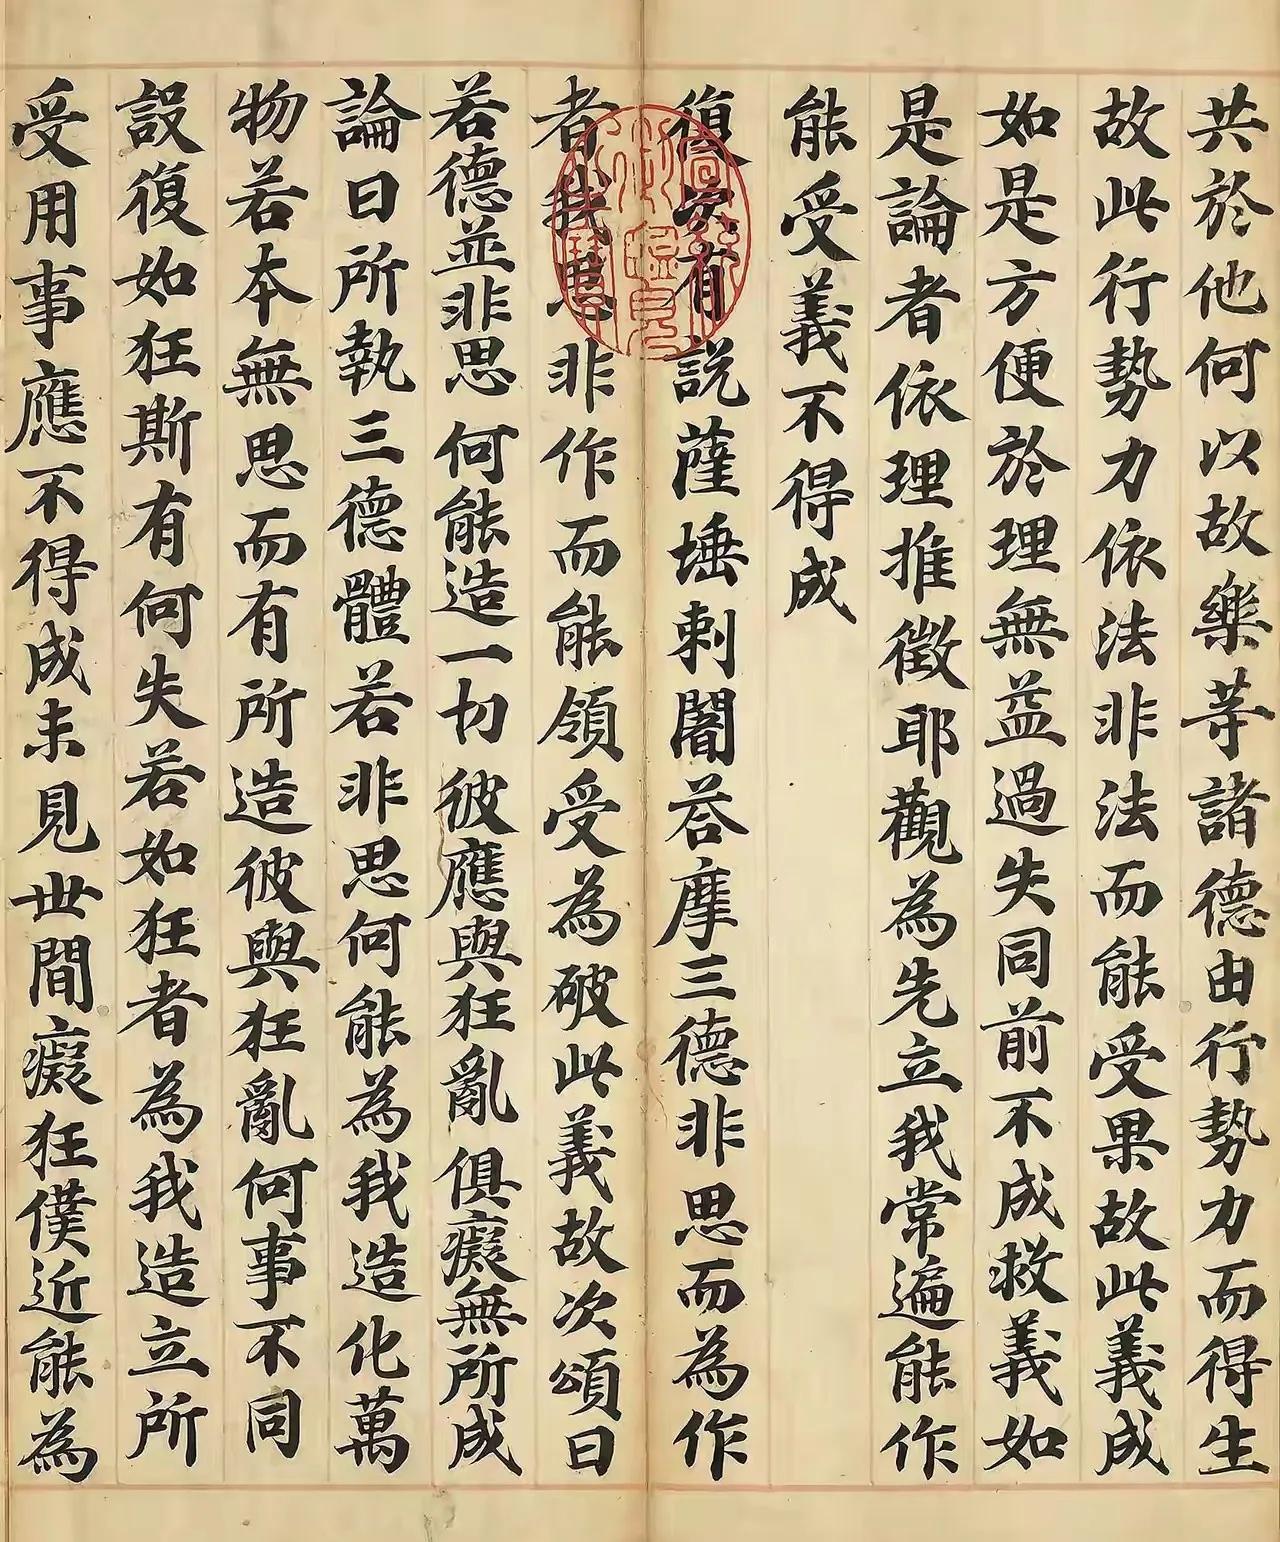 共於他何以故樂等諸德由行勢力而得生
故此行勢力依法非法而能受果故此義成
如是方便於理無益過失同前不成救義如
是論者依理推徵耶觀為先立我常遍能作
能受義不得成
復次有說薩埵剌闇荅摩三德非思而為作
者我思非作而能領受為破此義故次頌曰
若德並非思何能造一切彼應與狂亂俱癡無所成
論曰所執三德體若非思何能為我造化萬
物若本無思而有所造彼與狂亂何事不同
設復如狂斯有何失若如狂者為我造立所
受用事應不得成未見世間癡狂僕近能為